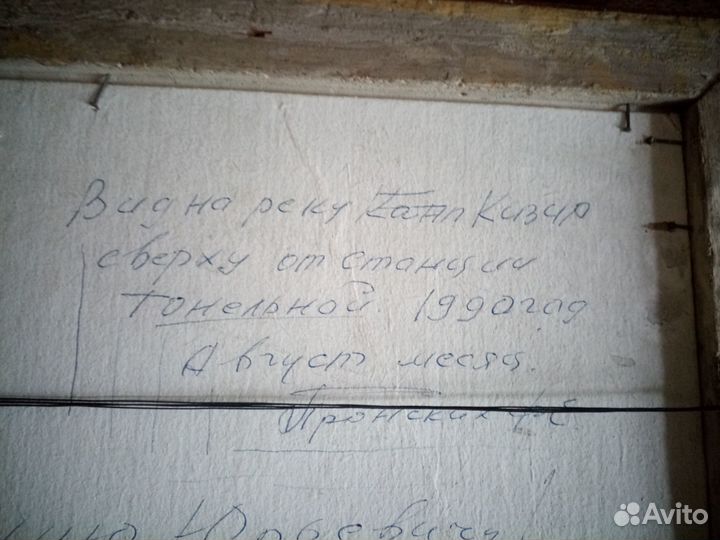 Вид на реку Кизир
сверху от станции
Тонельной. 1990 год
Август месяц.
Пронских
Юрьевичу
Avito